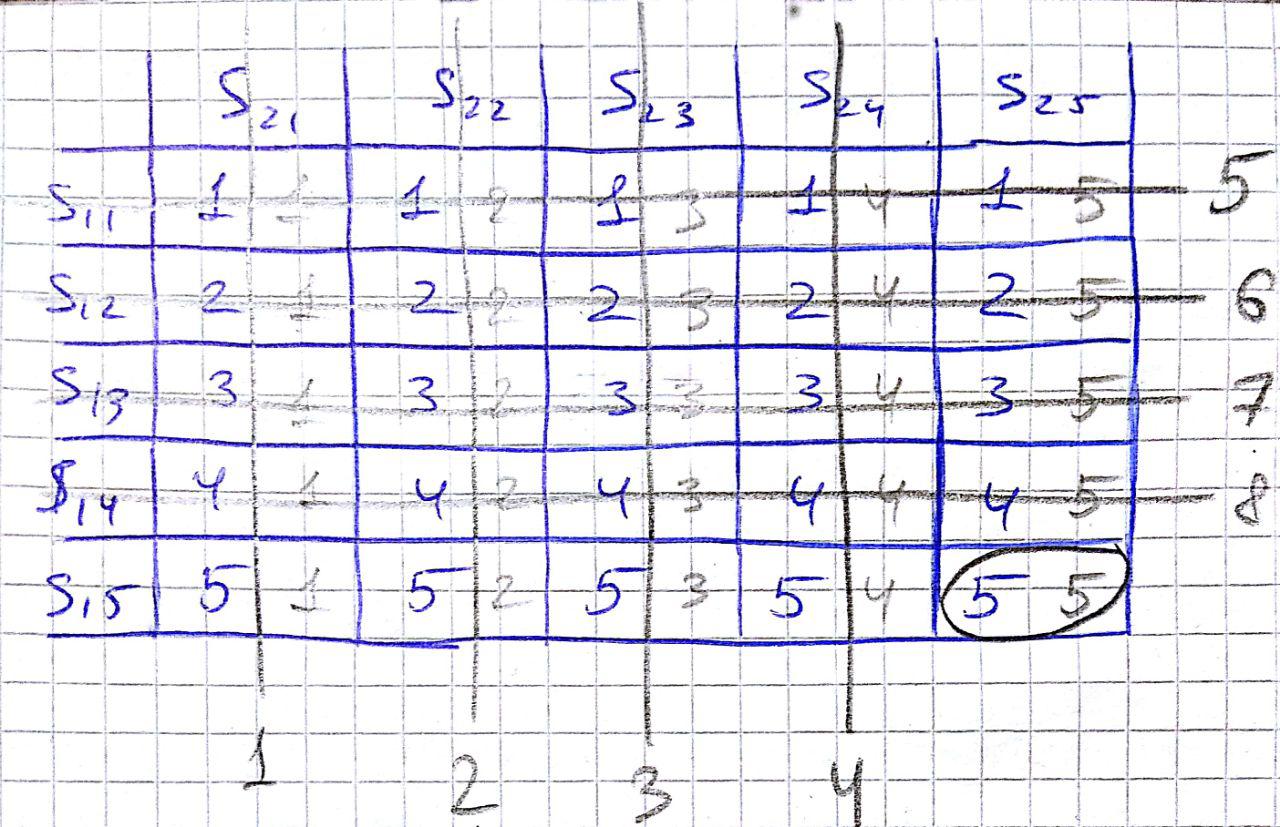 S21 S22 S23 S24 S25
S11 1 1 1 2 1 3 1 4 1 5 5
S12 2 1 2 2 2 3 2 4 2 5 6
S13 3 1 3 2 3 3 3 4 3 5 7
S14 4 1 4 2 4 3 4 4 4 5 8
S15 5 1 5 2 5 3 5 4 5 5
1 2 3 4